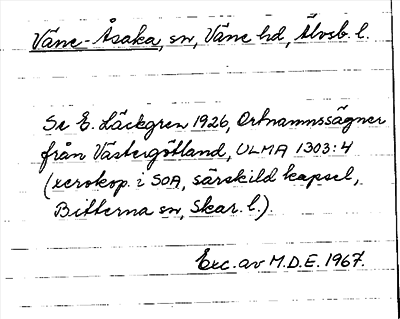 Väne-Åsaka, sn, Väne hd, Älvsb. l.
Se E. Läckgren 1926, Ortnamnssägner
från Västergötland, ULMA 1303:4
(xerokop. i SOA, särskild kapsel,
Bitterna sn, Skar. l.)
Exc. av M.D.E. 1967.